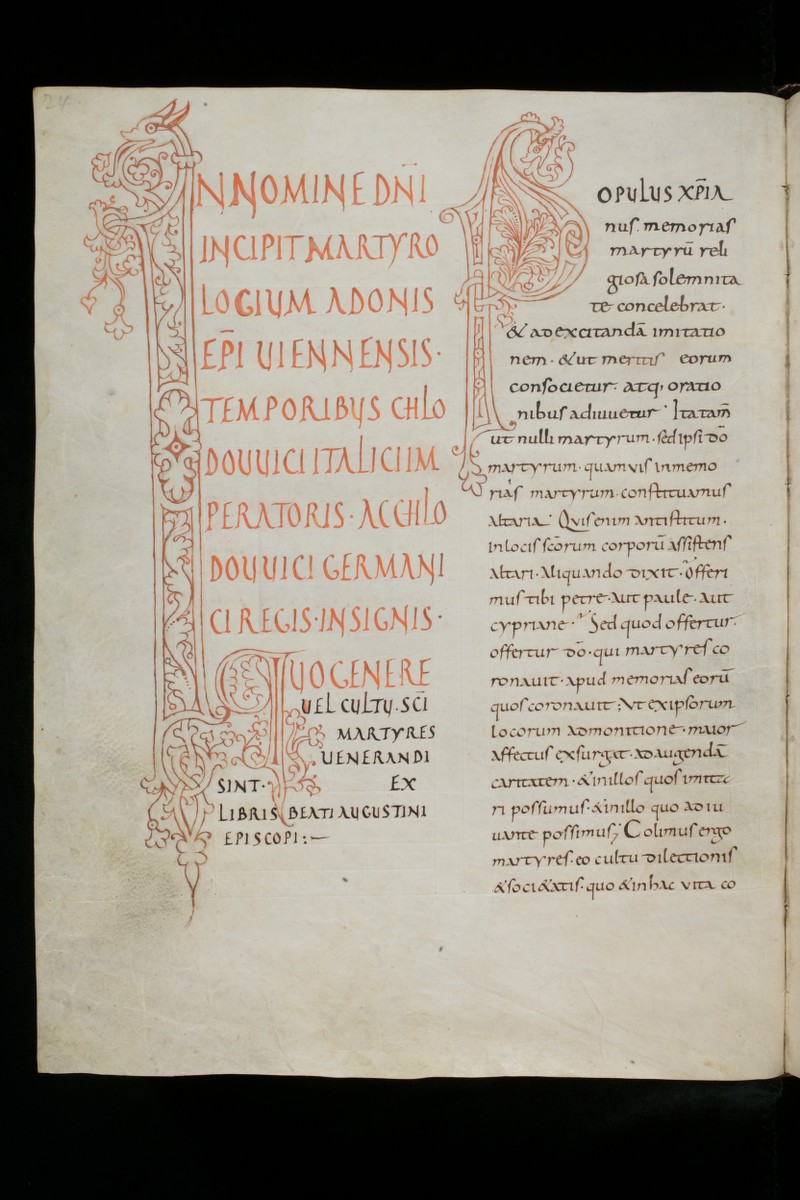 24
INNOMINE DN̅I
INCIPIT MARTYRO
LOGIUM ADONIS
EP̅I UIENNENSIS·
TEMPORIBUS CHLO
DOUUICI ITALICI IM
PERATORIS· AC CHLO
DOUUICI GERMANI
CI REGIS· INSIGNIS·
QUO GENERE
UEL CULTU· SC̅I
MARTYRES
UENERANDI
SINT· EX
LIBRIS BEATI AUGUSTINI
EPISCOPI:—
POPULUS XP̅IA
nus· memorias
martyrū reli
giosa solemnita
te concelebrat·
& ad excitandā imitatio
nem· & ut meritis eorum
consocietur· atq; oratio
nibus adiuuetur· Ita tam̅
ut nulli martyrum· sed ipsi dō
martyrum· quamvis inmemo
rias martyrum· constituamus
altaria· Quis enim antistitum·
in locis scōrum corporū assistens
altari· Aliquando dixit· Offeri
mus tibi petre· Aut paule· Aut
cypriane· Sed quod offertur·
offertur dō· qui martyres co
ronauit· apud memorias eorū
quos coronauit; Ut ex ipsorum
locorum admonitione· maior
affectus exsurgat· ad augendā
caritatem· & in illos quos imita
ri possumus· & in illo quo adiu
uante possimus; Colimus ergo
martyres· eo cultu dilectionis
& soci&atis· quo & in hac vita co